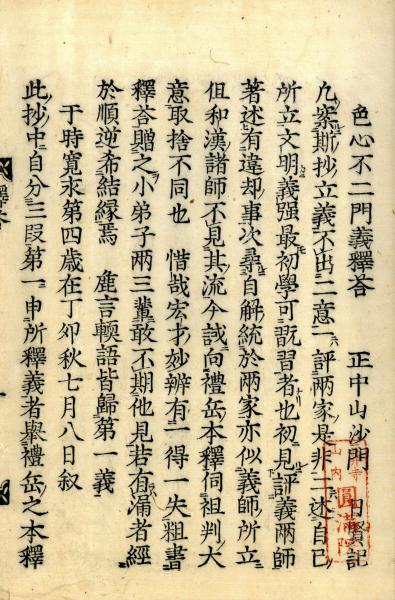 色心不二門義釋荅　正中山沙門　日賢記
凢案斯抄立義不出二意一評兩家是非二述自己
所立文明義强最初學可既習者也初見評義兩師
著述有違却事次尋自解統於兩家亦似義師所立
但和漢諸師不見其流今試向禮岳本釋伺祖判大
意取捨不同也　惜哉宏才妙辨有一得一失粗書
釋荅贈之小弟子兩三輩敢不期他見若有漏者經
於順逆希結縁焉　麁言輭語皆歸第一義
于時寬永第四歳在丁卯秋七月八日叙
此抄中自分三段第一申所釋義者舉禮岳之本釋
寺
山内
圓滿院
釋荅